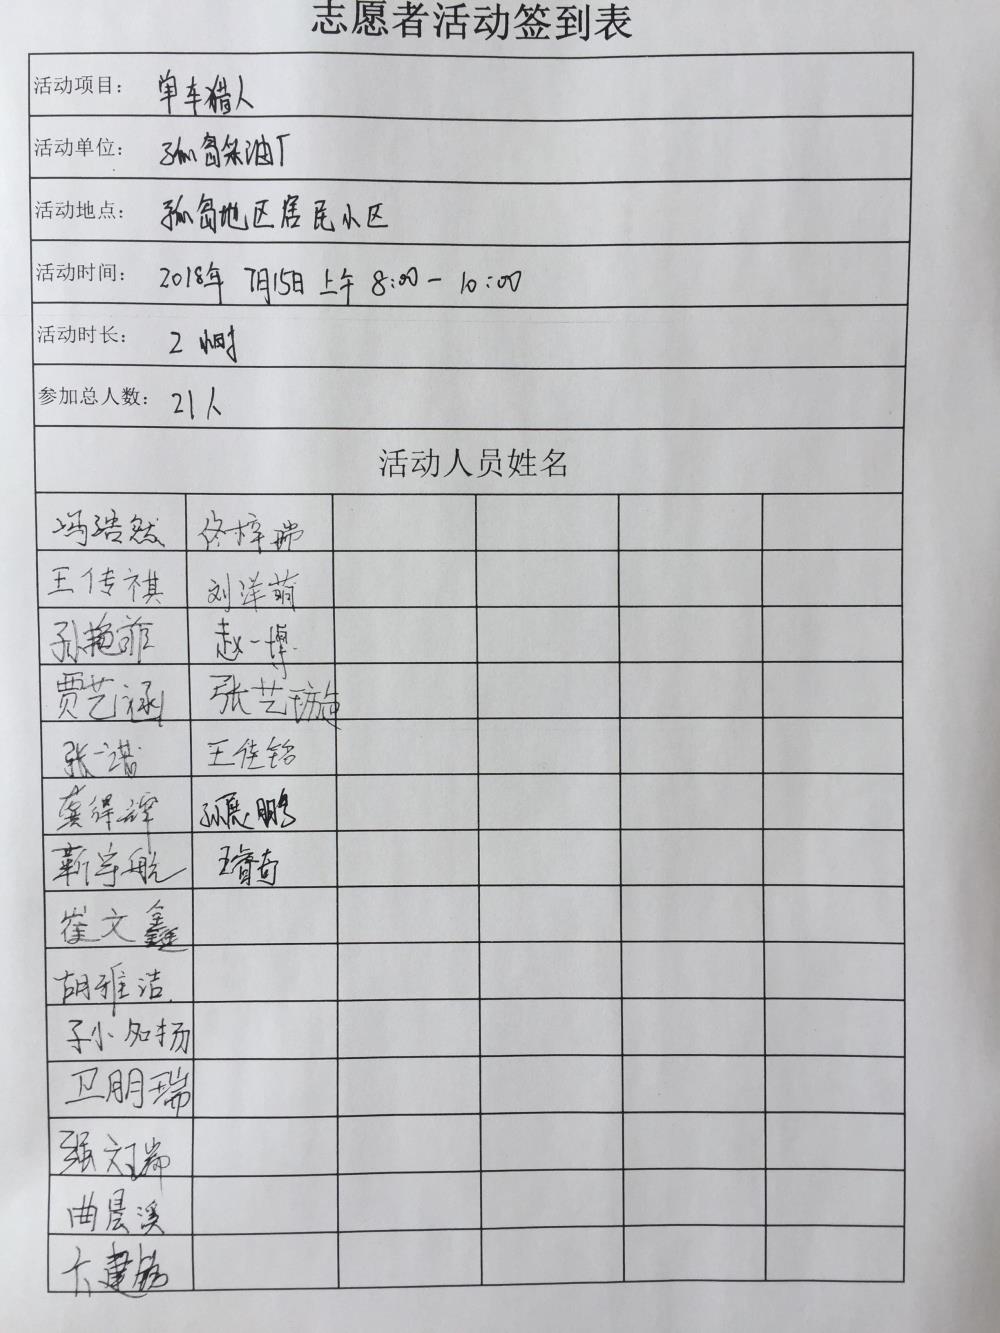 志愿者活动签到表
活动项目： 单车猎人
活动单位： 孤岛采油厂
活动地点： 孤岛地区居民小区
活动时间： 2018年 7月15日 上午 8:00 - 10:00
活动时长： 2 小时
参加总人数： 21人
活动人员姓名
冯浩然 佟梓瑞
王传祺 刘洋萌
孙艳菲 赵一博
贾艺涵 张艺璇
张一诺 王佳铭
龚得辉 孙展鹏
靳宇航 王睿奇
崔文鑫
胡雅洁
孙名扬
卫朋瑞
强文瑞
曲晨溪